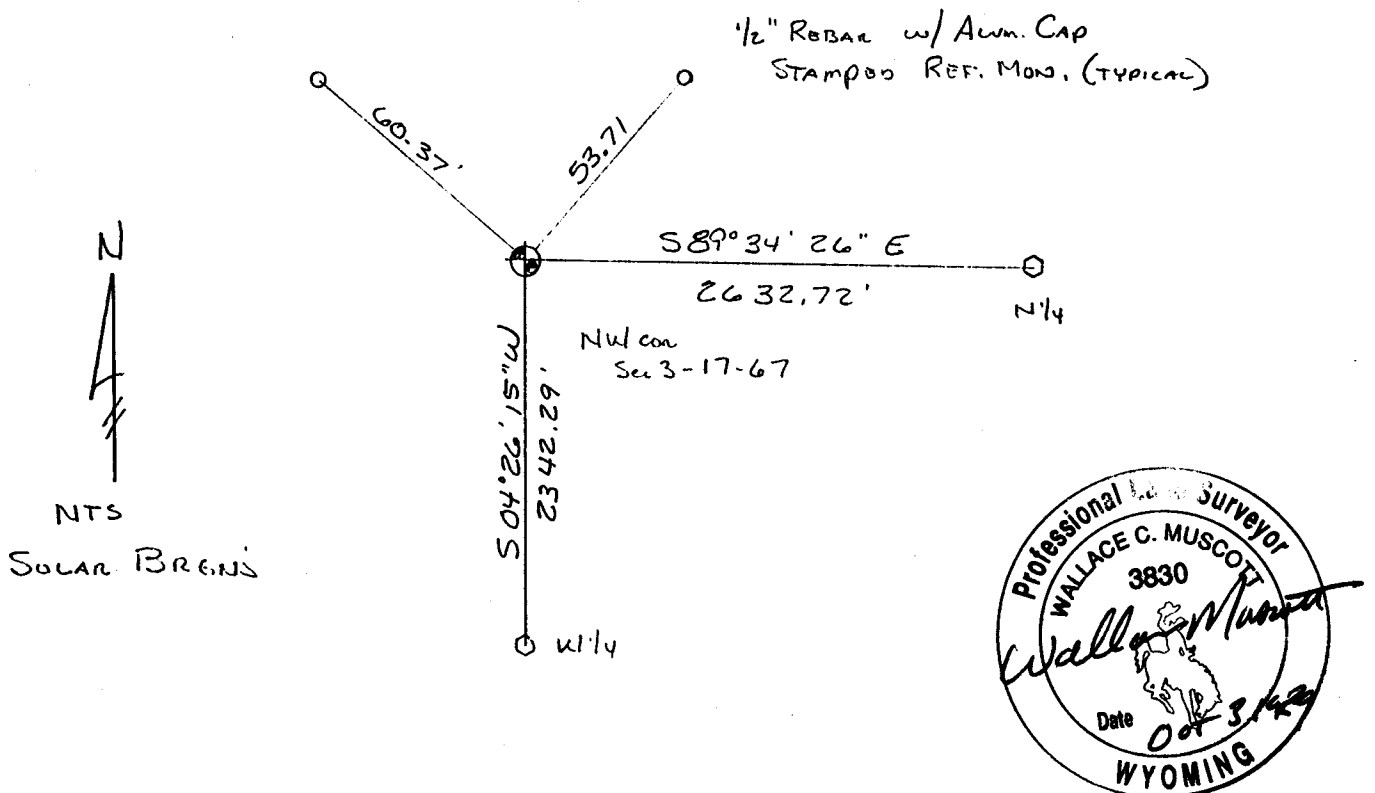 1/2" REBAR w/ ALUM. CAP
STAMPED REF. MON. (TYPICAL)
60.37'
53.71
N
S 89° 34' 26" E
2632.72'
N 1/4
NW cor
Sec 3-17-67
S 04° 26' 15" W
2342.29'
NTS
SOLAR BRG'NS
W 1/4
Professional Surveyor
WALLACE C. MUSCOTT
3830
Wallace Muscott
Date Oct 3
WYOMING